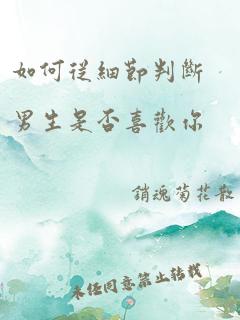 如何從細節判斷
男生是否喜歡你
銷魂菊花散
未經同意禁止轉載